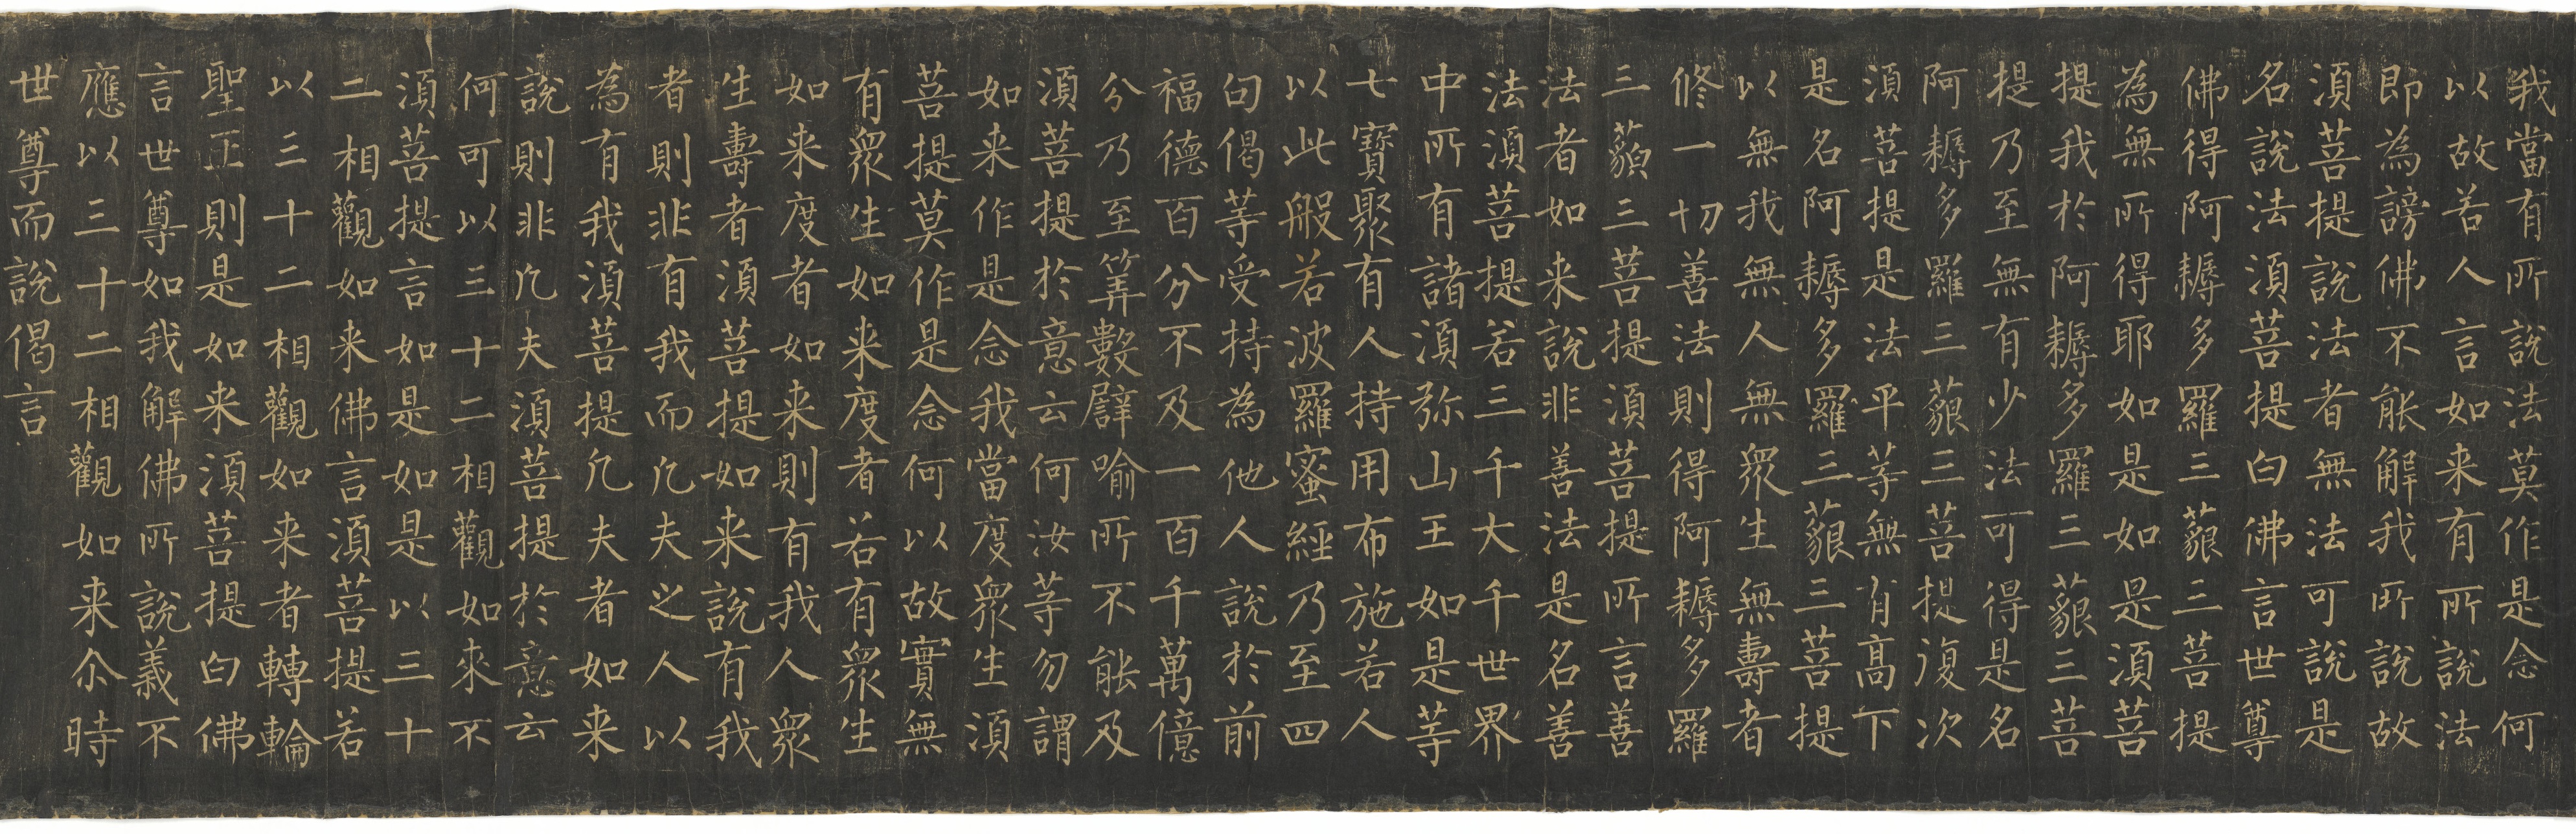 我當有所說法莫作是念何
以故若人言如来有所說法
即為謗佛不能解我所說故
須菩提說法者無法可說是
名說法須菩提白佛言世尊
佛得阿耨多羅三藐三菩提
為無所得耶如是如是須菩
提我於阿耨多羅三藐三菩
提乃至無有少法可得是名
阿耨多羅三藐三菩提復次
須菩提是法平等無有高下
是名阿耨多羅三藐三菩提
以無我無人無眾生無壽者
修一切善法則得阿耨多羅
三藐三菩提須菩提所言善
法者如来說非善法是名善
法須菩提若三千大千世界
中所有諸須弥山王如是等
七寶聚有人持用布施若人
以此般若波羅蜜經乃至四
句偈等受持為他人說於前
福德百分不及一百千萬億
分乃至筭數譬喻所不能及
須菩提於意云何汝等勿謂
如来作是念我當度眾生須
菩提莫作是念何以故實無
有眾生如来度者若有眾生
如来度者如来則有我人眾
生壽者須菩提如来說有我
者則非有我而凡夫之人以
為有我須菩提凡夫者如来
說則非凡夫須菩提於意云
何可以三十二相觀如來不
須菩提言如是如是以三十
二相觀如来佛言須菩提若
以三十二相觀如来者轉輪
聖王則是如来須菩提白佛
言世尊如我解佛所說義不
應以三十二相觀如来尒時
世尊而說偈言